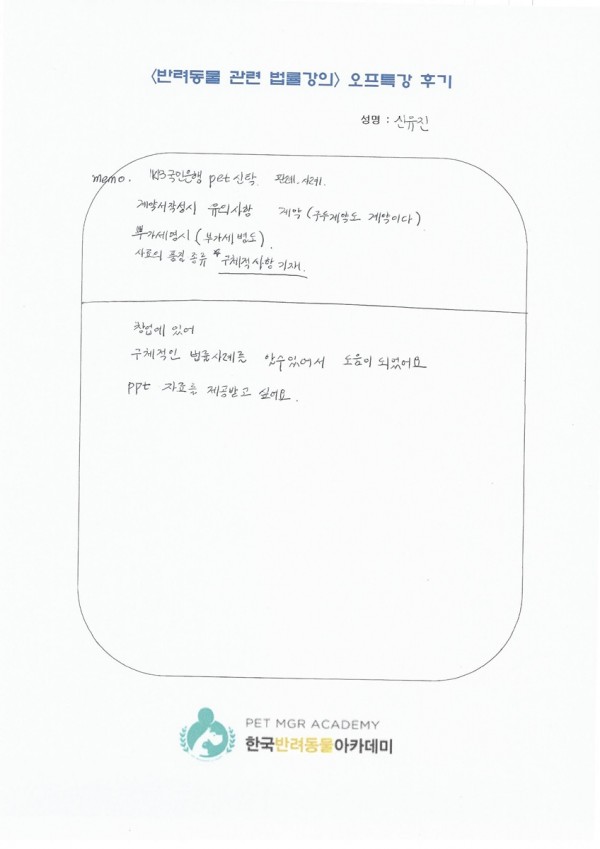 <반려동물 관련 법률강의> 오프특강 후기
성명 : 신유진
memo. KB국민은행 pet 신탁. 판례.사례.
계약서작성시 유의사항 계약(구두계약도 계약이다)
부가세명시(부가세 별도).
사료의 품질 종류 * 구체적사항 기재.
창업에 있어
구체적인 법률사례를 알수있어서 도움이 되었어요
ppt 자료를 제공받고 싶어요.
PET MGR ACADEMY
한국반려동물아카데미